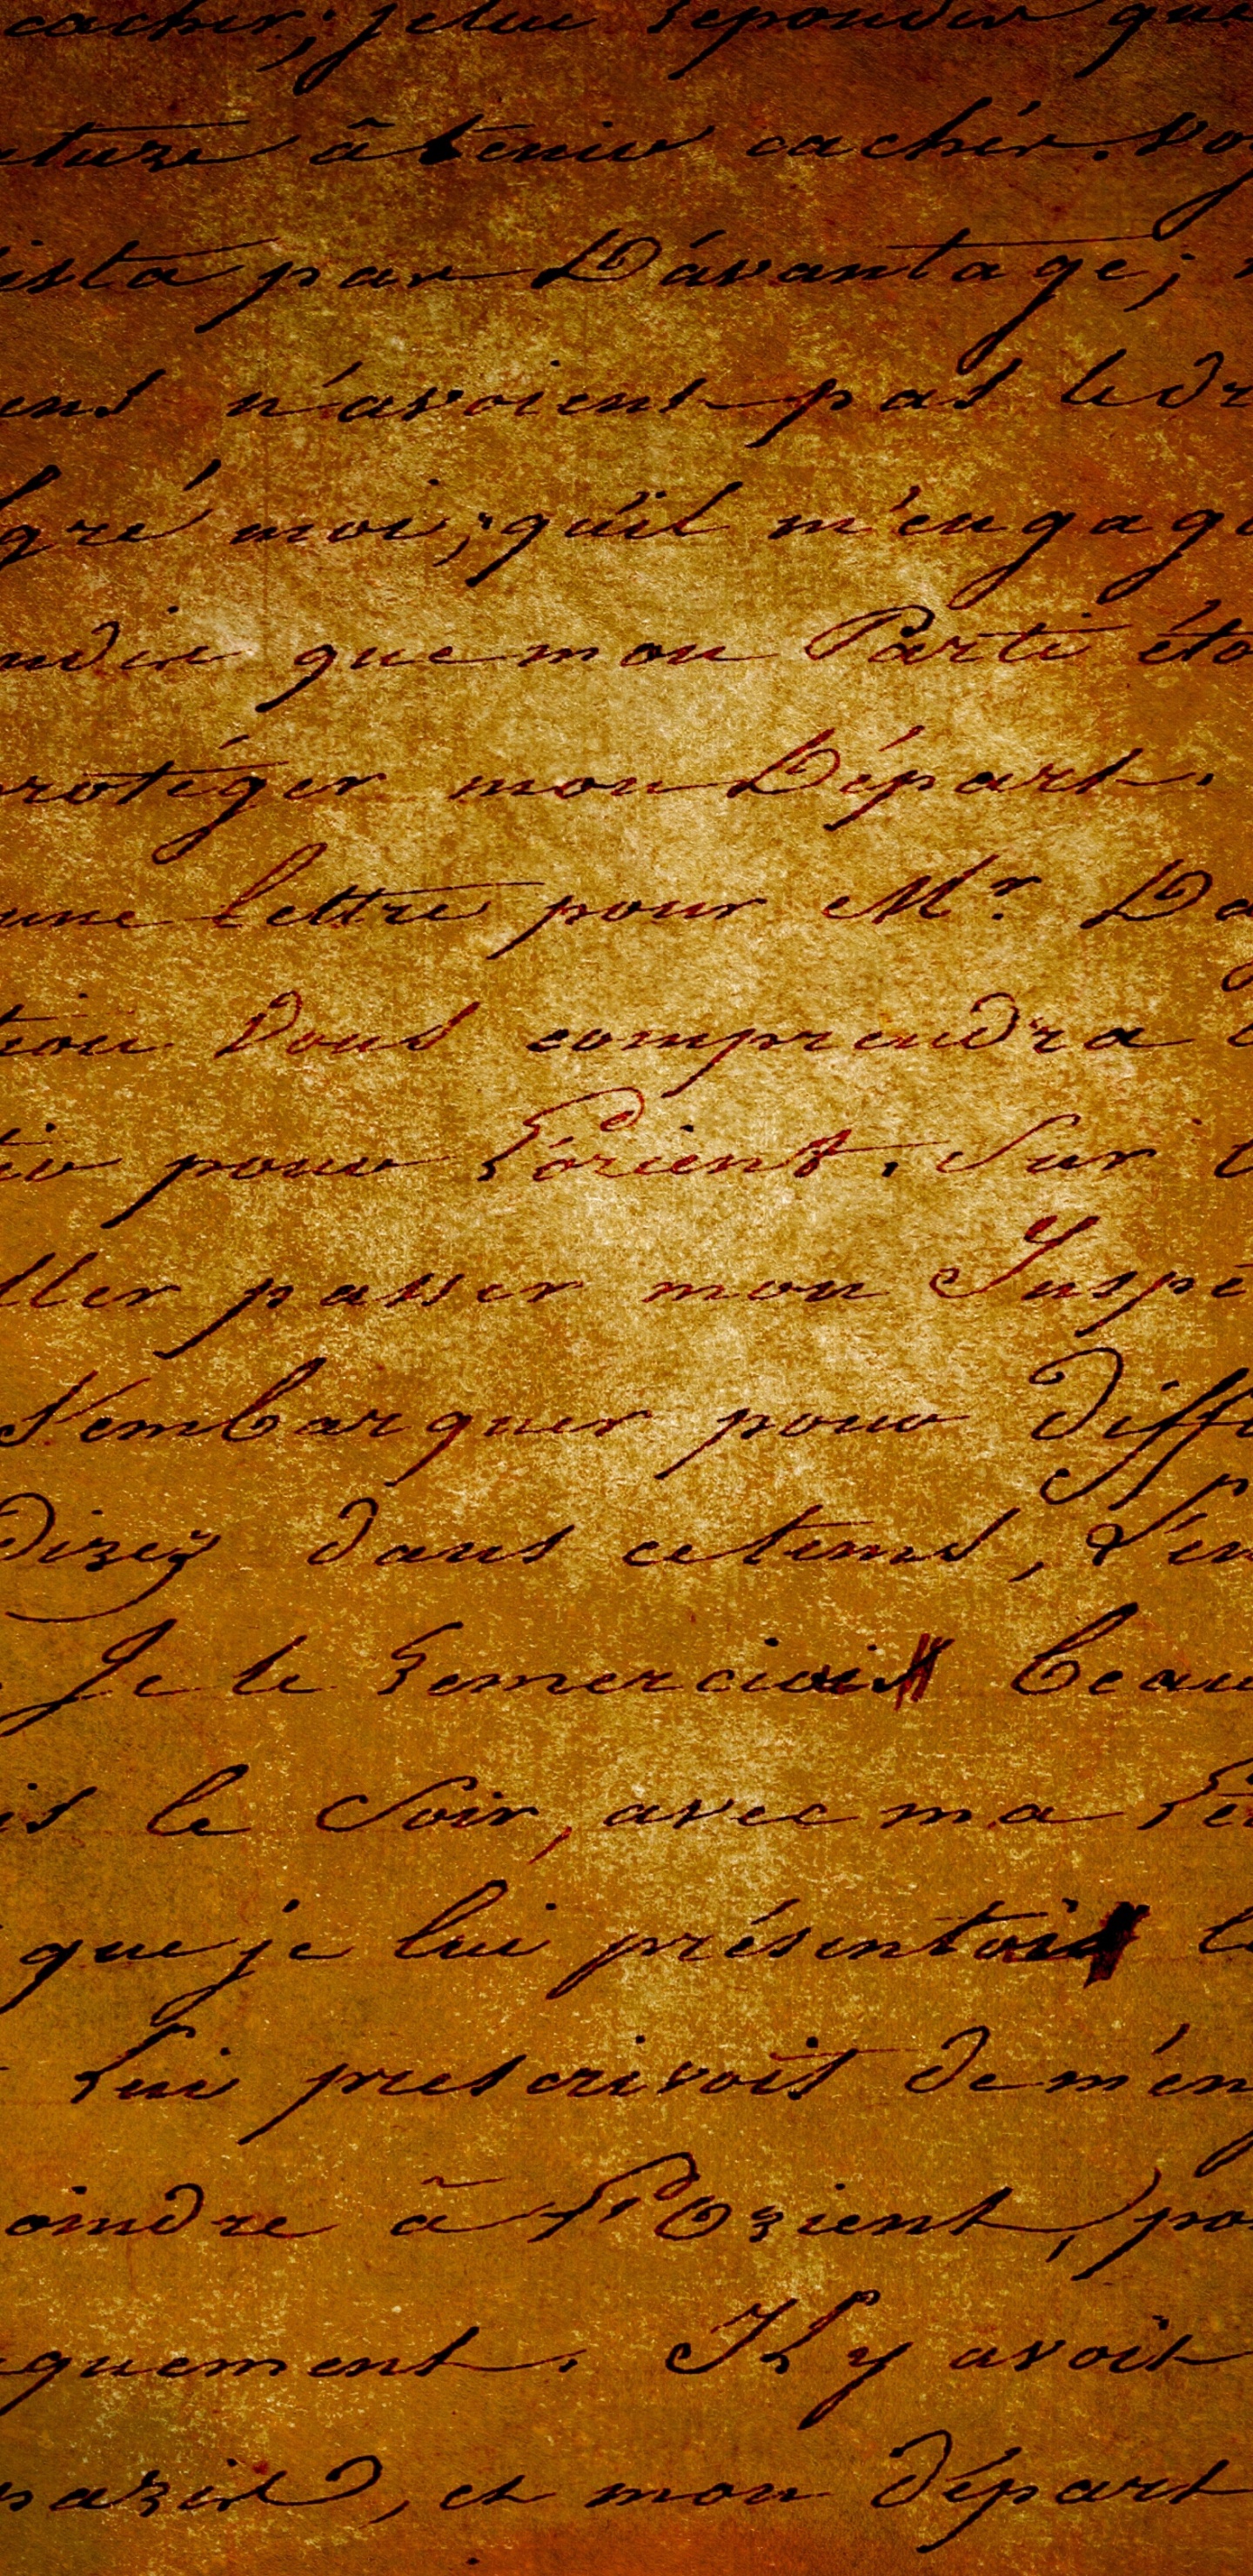 cacher; je lui repondis que
à tenir cachér. Vo
ista par Dávantage;
ens n'avoient pas le dr
lgré moi; qu'il m'engag
ndis que mon Parti éto
rotéger mon Départ.
une lettre pour Mr. D
tion Vous comprendra
pour L'orient. Sur
ller passer mon Inspe
S'embarquer pour diff
Dizez dans cetems, S'en
Je le remerciois beau
is le Soir, avec ma
que je lui présentois
lui prescrivoit de m'en
oindre à L'Orient, po
quement. Il y avoit
et mon départ